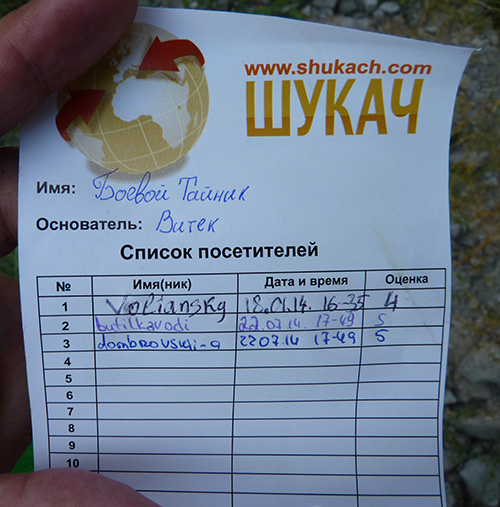 www.shukach.com
ШУКАЧ
Имя: Боевой Тайник
Основатель: Витек
Список посетителей
№ Имя(ник) Дата и время Оценка
1 Voliansky 18.01.14. 16-35 4
2 butilkavodi 22.07.14. 17-49 5
3 dombrovski-a 2207.14 17-49 5
4
5
6
7
8
9
10